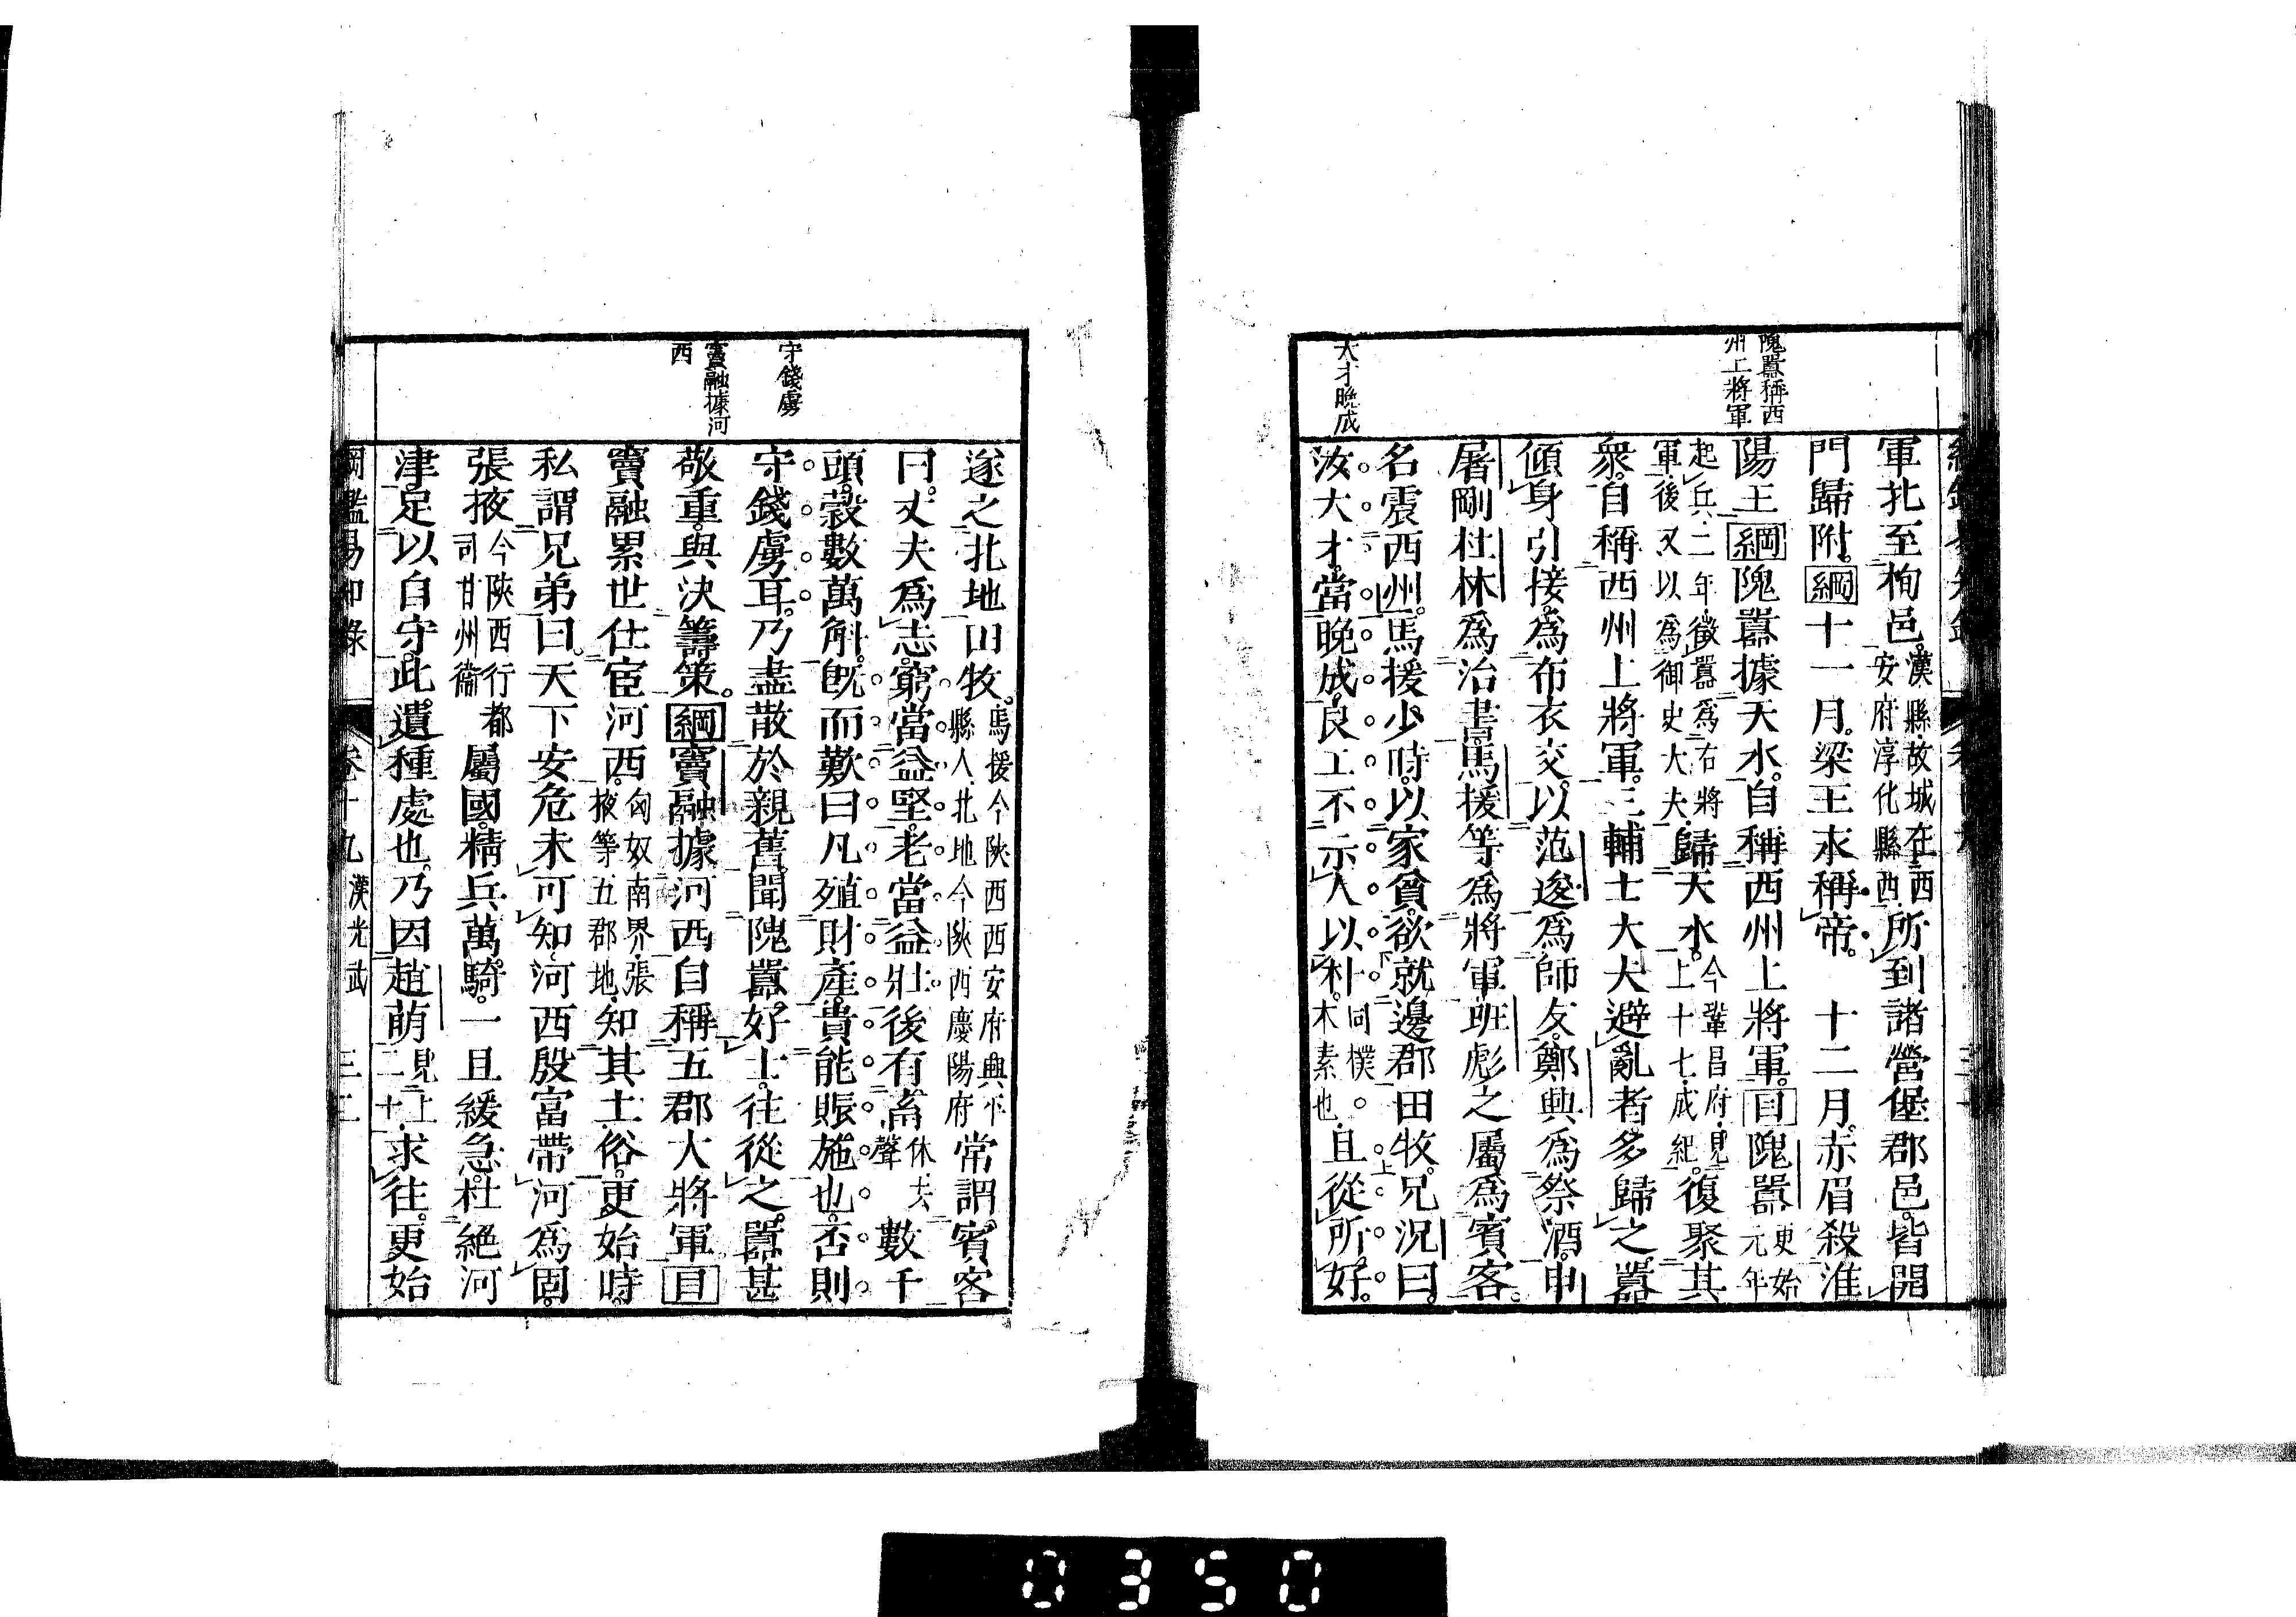 隗囂稱西
州上將軍
大才晚成
軍北至栒邑漢縣故城在西安府淳化縣西所到諸營堡郡邑皆開
門歸附綱十一月梁王永稱帝 十二月赤眉殺淮
陽王綱隗囂據天水自稱西州上將軍目隗囂更始元年
起兵二年徵囂爲右將軍後又以爲御史大夫歸天水今鞏昌府見上十七成紀復聚其
衆自稱西州上將軍三輔士大夫避亂者多歸之囂
傾身引接爲布衣交以范逡爲師友鄭興爲祭酒申
屠剛杜林爲治書馬援等爲將軍班彪之屬爲賓客
名震西州馬援少時以家貧欲就邊郡田牧兄況曰
汝大才當晚成良工不示人以朴同樸木素也且從所好
守錢虜
竇融據河
西
遂之北地田牧馬援今陝西西安府興平縣人北地今陝西慶陽府常謂賓客
曰丈夫爲志窮當益堅老當益壯後有畜休去聲數千
頭穀數萬斛旣而歎曰凡殖財產貴能賑施也否則
守錢虜耳乃盡散於親舊聞隗囂好士往從之囂甚
敬重與決籌策綱竇融據河西自稱五郡大將軍目
竇融累世仕宦河西匈奴南界張掖等五郡地知其土俗更始時
私謂兄弟曰天下安危未可知河西殷富帶河爲固
張掖今陝西行都司甘州衞屬國精兵萬騎一旦緩急杜絕河
津足以自守此遺種處也乃因趙萌見上二十求往更始
綱鑑易知錄 卷十九 漢光武
0350